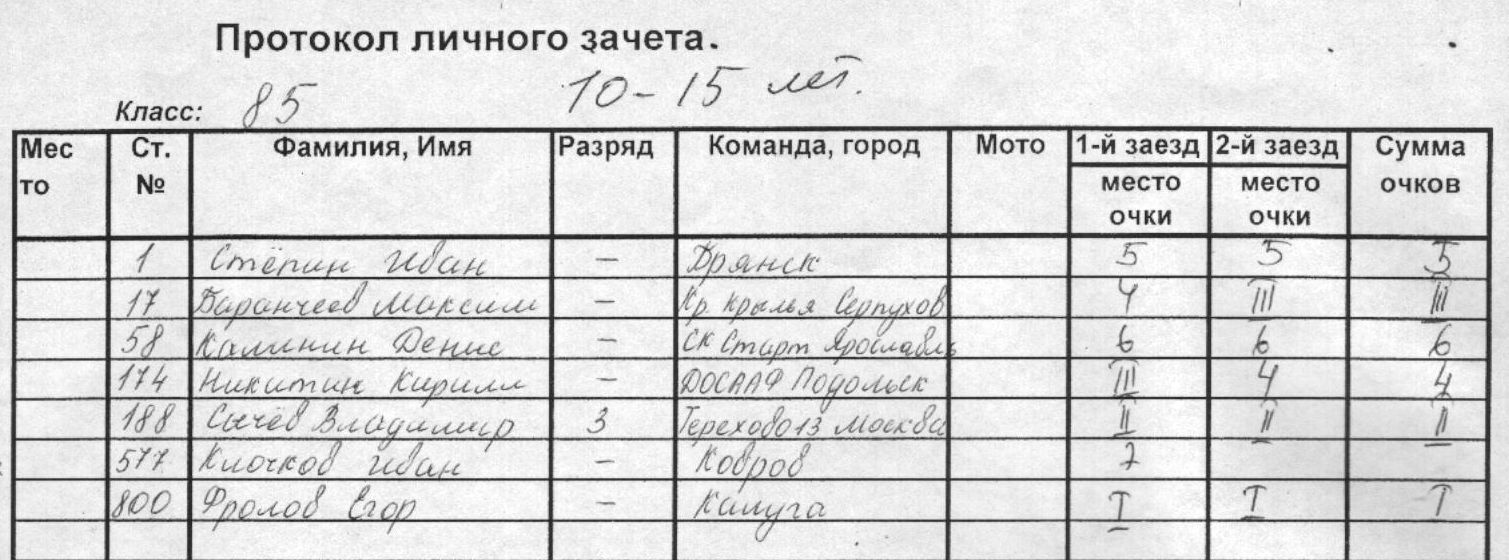 Протокол личного зачета.
Класс: 85 10-15 лет.
Место Ст. № Фамилия, Имя Разряд Команда, город Мото 1-й заезд место очки 2-й заезд место очки Сумма очков
1 Стёпин Иван — Брянск 5 5 5
17 Баранчеев Максим — Кр. Крылья Серпухов 4 III III
58 Калинин Денис — СК Старт Ярославль 6 6 6
174 Никитин Кирилл — ДОСААФ Подольск III 4 4
188 Сычёв Владимир 3 Терехово 13 Москва II II II
577 Клочков Иван — Ковров 7
800 Фролов Егор — Калуга I I I